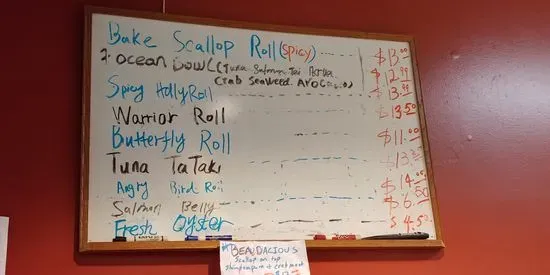 Bake Scallop Roll (spicy) $13.00
Ocean Bowl (Tuna Salmon Tai $12.99
Crab Seaweed AVOC
Spicy Holly Roll $13.99
Warrior Roll $13.50
Butterfly Roll $11.00
Tuna TaTaki
Angry Bird Roll $14.00
Salmon Belly $6.50
Fresh Oyster $4.50
BEAUDACIOUS
Scallop on top
Shrimp tempura + crab meat